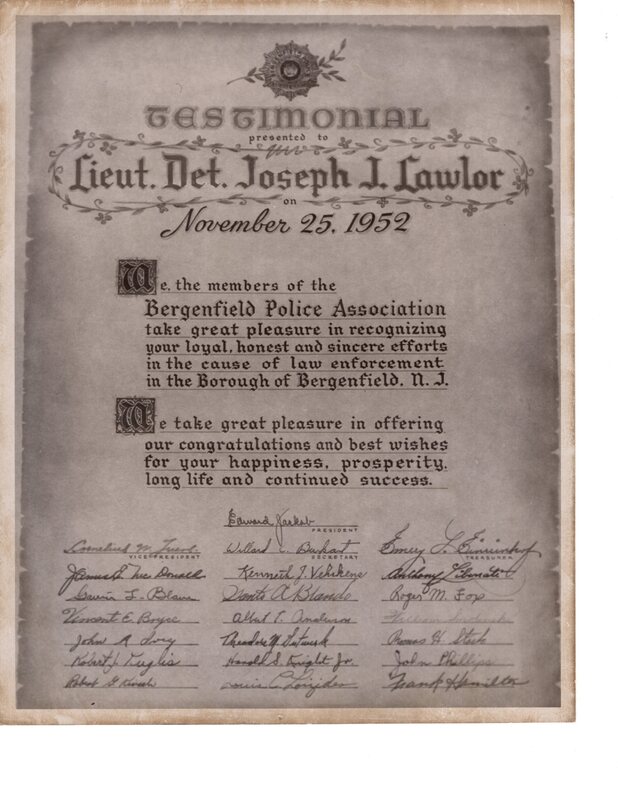 TESTIMONIAL
presented to
Lieut. Det. Joseph J. Lawlor
on
November 25, 1952
We, the members of the
Bergenfield Police Association
take great pleasure in recognizing
your loyal, honest and sincere efforts
in the cause of law enforcement
in the Borough of Bergenfield, N. J.
We take great pleasure in offering
our congratulations and best wishes
for your happiness, prosperity,
long life and continued success.
Edward
PRESIDENT
Cornelius W. Willard C. Emery
VICE-PRESIDENT SECRETARY TREASURER
James Mc Donald Kenneth J. Anthony
Dante A Blando Roger M. Fox
Vincent E Boyce Albert T. Anderson
John A Ivey Theodore Thomas H.
Robert J. Harold S. Knight Jr. John Phillips
Robert G. Louis C. Frank Hamilton